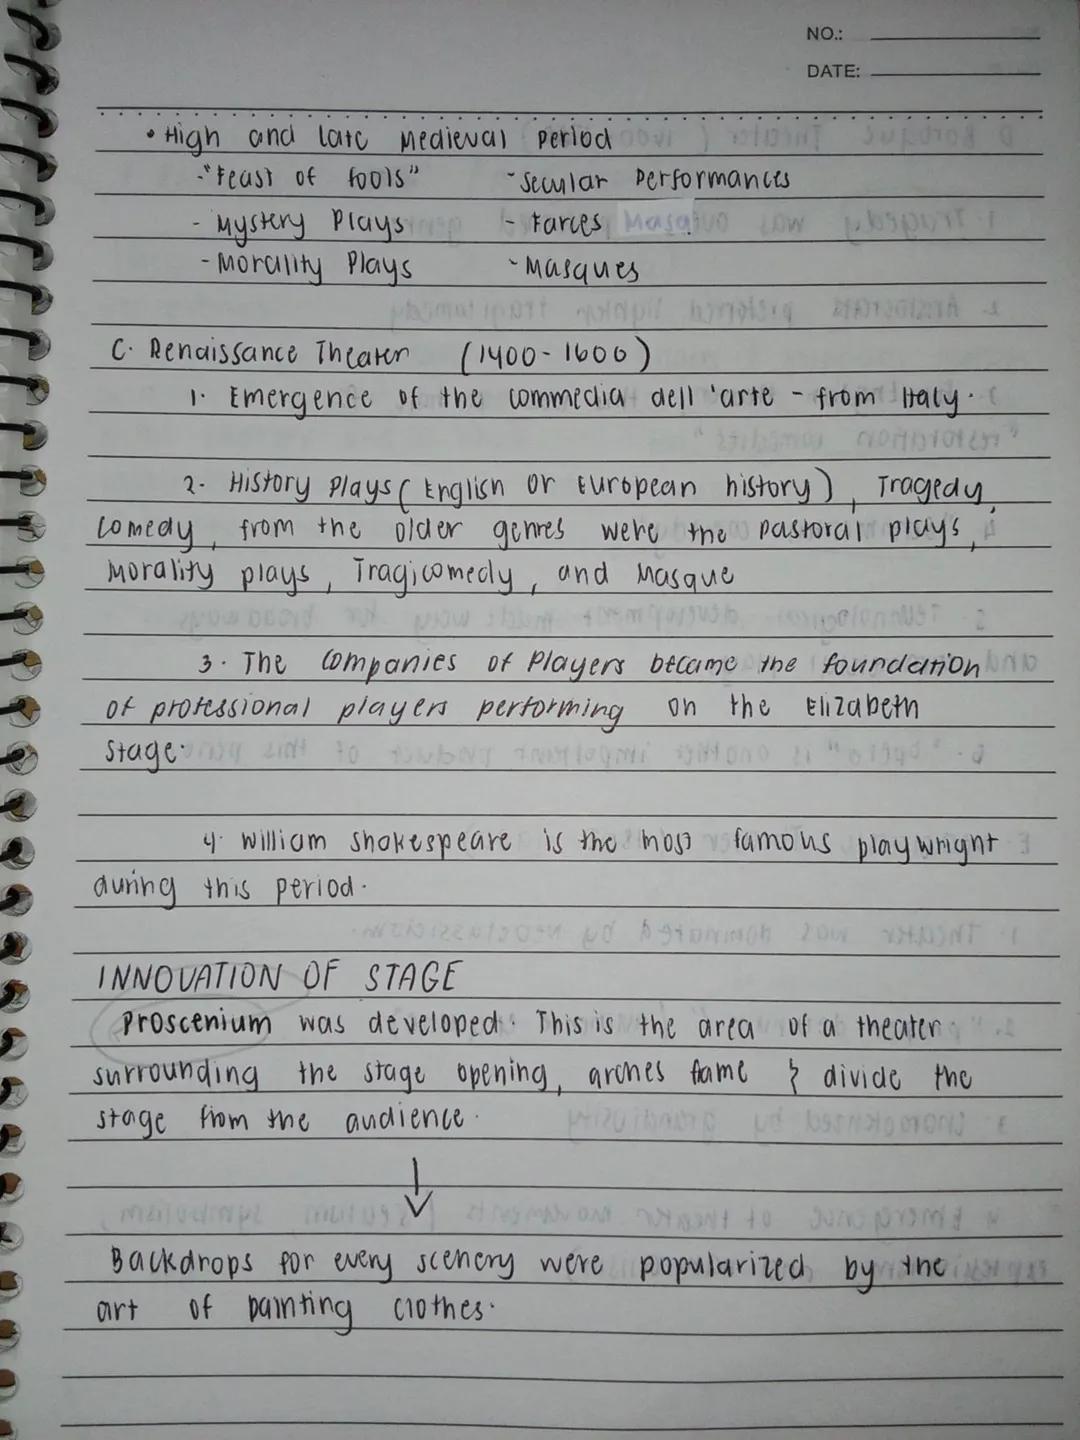 NO.:
DATE:
• High and late Medieval Period
- "Feast of fools" - Secular Performances
- Mystery Plays - Farces
- Morality Plays - Masques
C. Renaissance Theater (1400-1600)
1. Emergence of the commedia dell 'arte - from Italy.
2. History Plays ( English or European history ), Tragedy,
Comedy, from the older genres were the pastoral plays,
Morality plays, Tragicomedy, and Masque
3. The Companies of Players became the foundation
of professional players performing on the Elizabeth
Stage.
4. William Shakespeare is the most famous playwright
during this period.
INNOVATION OF STAGE
Proscenium was developed. This is the area of a theater
surrounding the stage opening, arches fame & divide the
stage from the audience.
↓
Backdrops for every scenery were popularized by the
art of painting clothes.